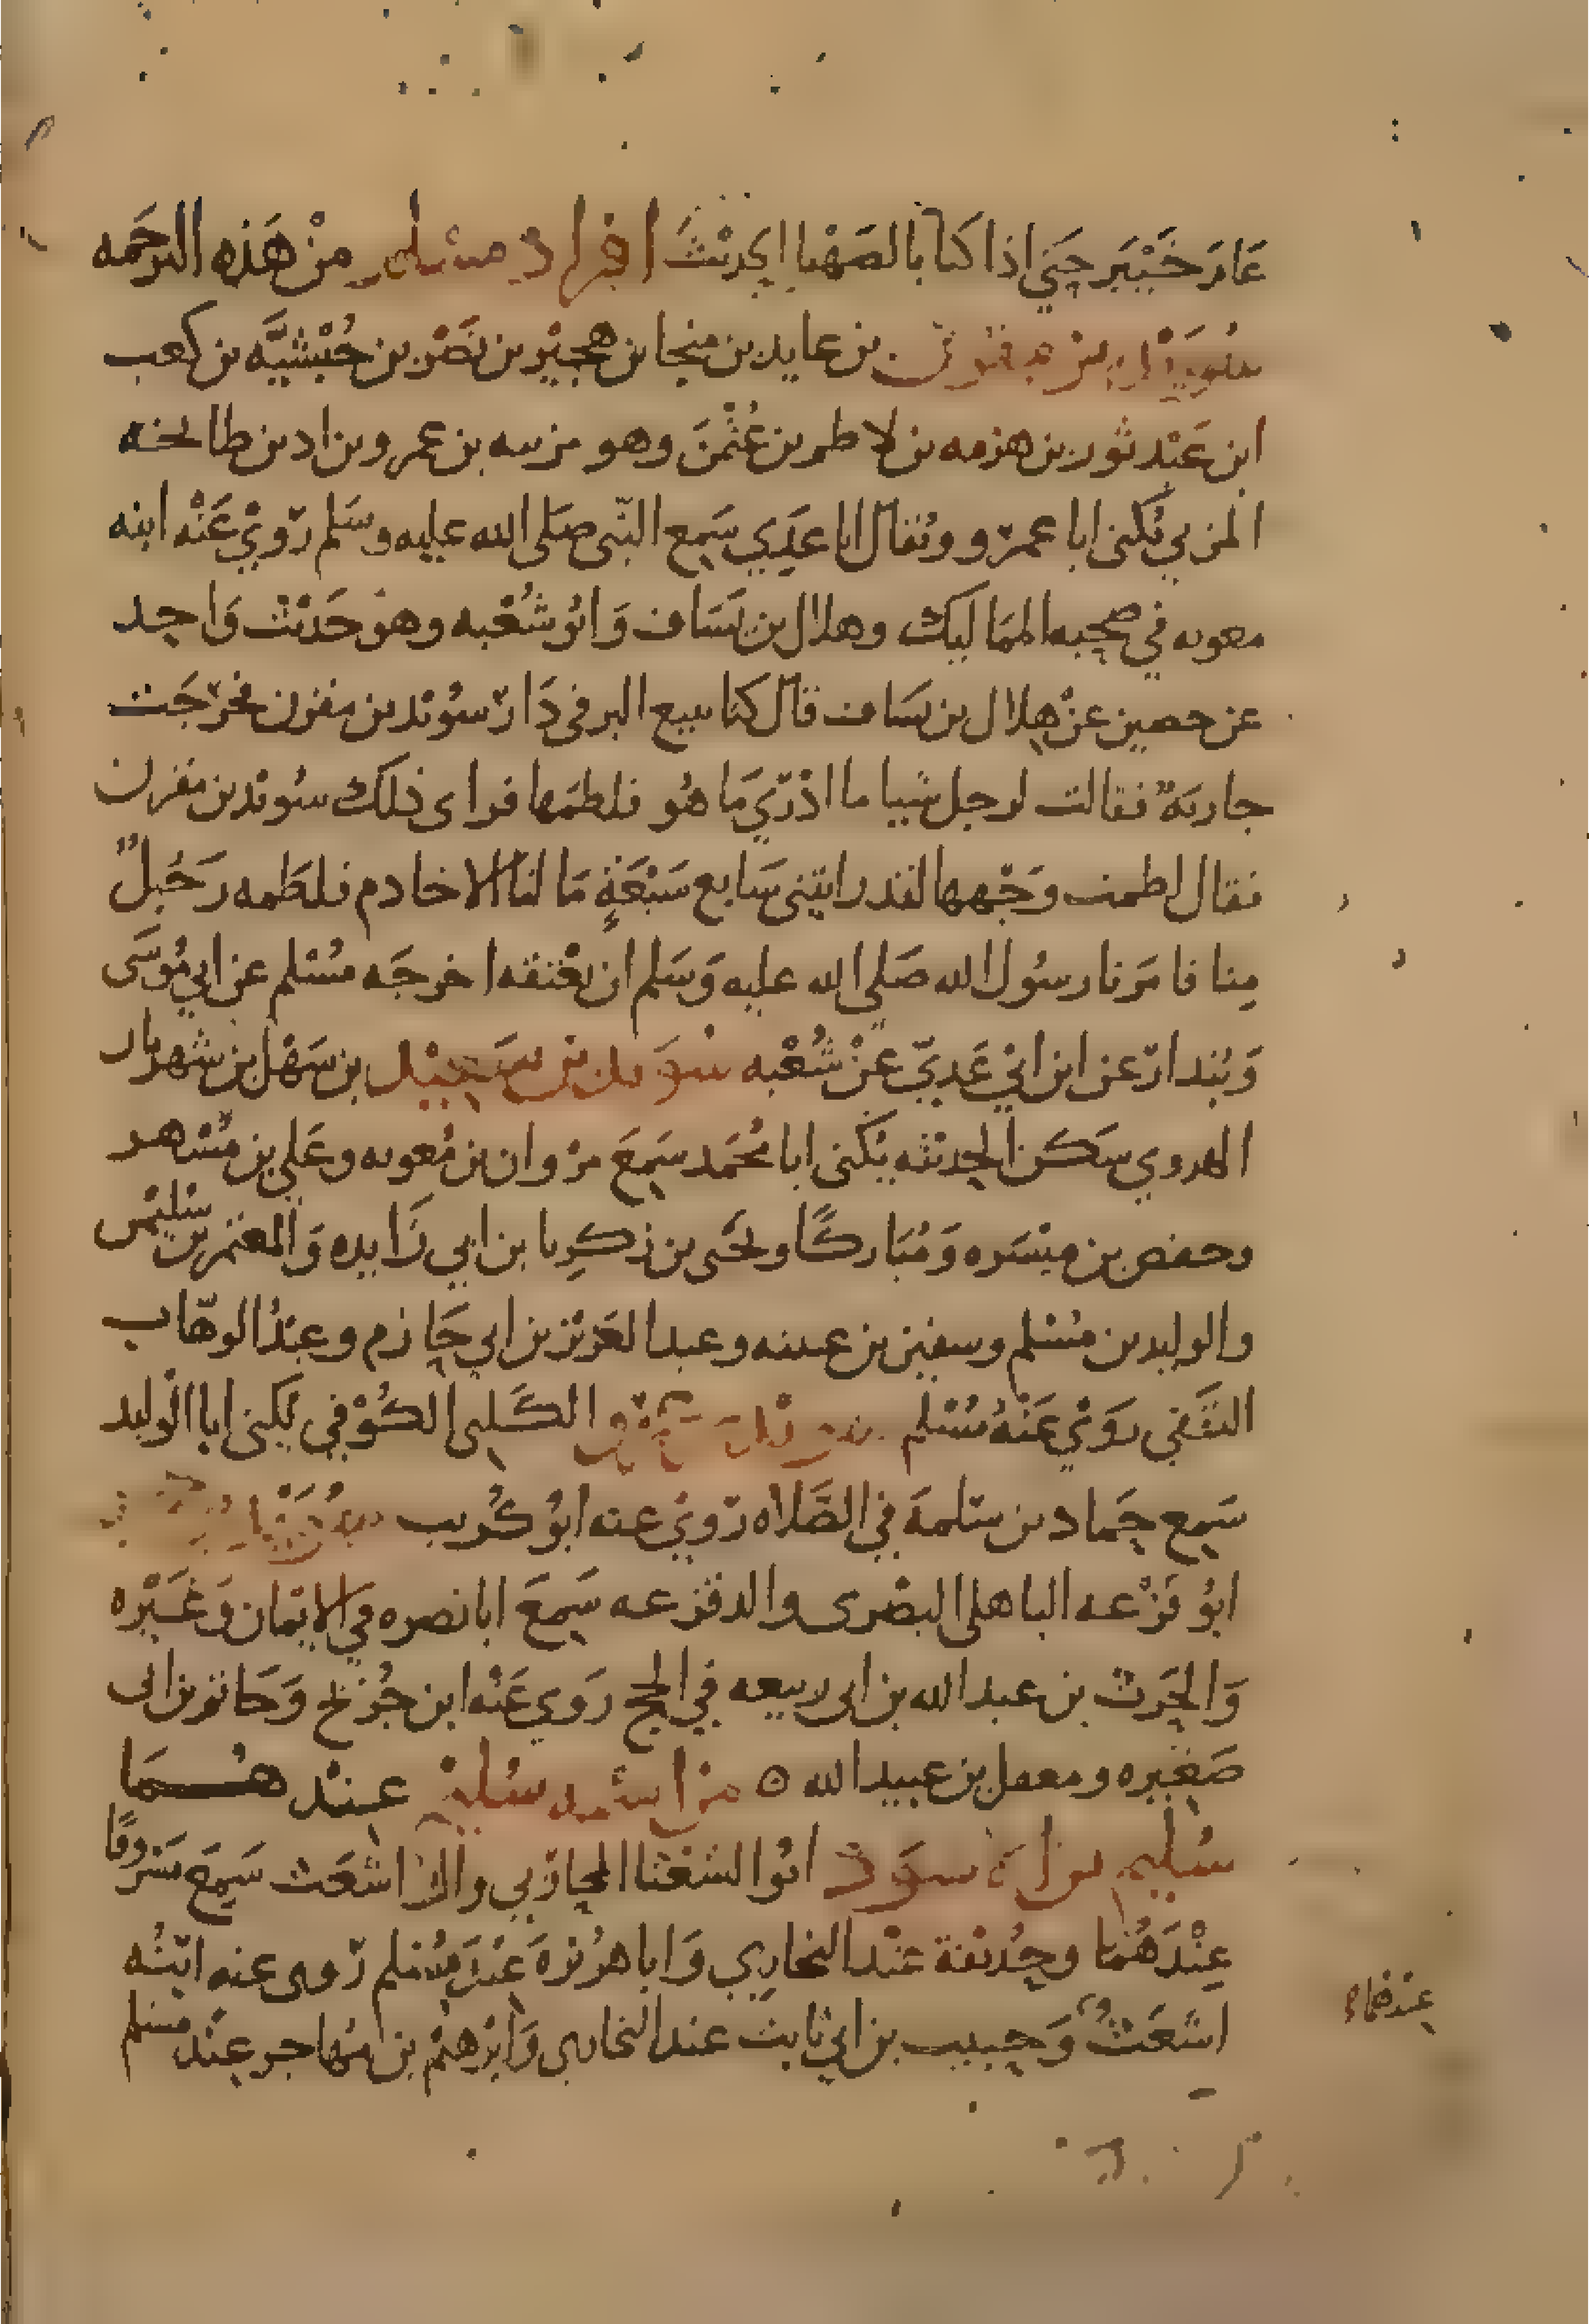 عَامَ خَيْبَر حَتى اذا كنا بالصَهْبا الحديثَ افراد مسلم من هَذه الترجَمه
سُوَيْد بن مقرن بن عايد بن منجا بن هجَيْر بن نَصْر بن حُبْشيَّه بن كعب
ابن عَبْد ثور بن هذمه بن لاطم بن عُثْمٰنَ وهو مزينه بن عمرو بن اد بن طابخه
المزني يُكنى ابا عمرو ويُقال ابا عَدِي سَمِع النّبى صَلى الله عليه وسَلم رَوَيْ عَنْه ابنه
معويه في صحبه المَمَاليك وهلال بن يَسَاف وَابُو شُعْبه وهو حَديْث وَاحِد
عن حصين عنْ هِلال بن يسَاف قالَ كنا نبيع البر فى دَار سُوَيْد بن مقرن فخرَجَت
جاريَة فقالت لرجل شيا ما ادْرِي مَا هُو فلطمَها فراى ذلك سُوَيْد بن مقرن
فقال لطمت وَجْهها لقد رايتنى سَابع سَبْعَةٍ مَا لنا الا خادم فلطَمه رَجُلٌ
مِنا فامَرَنا رسُول الله صَلى الله عليه وَسَلم ان يعْتقه اخرجَه مسْلم عن ابي مُوسَى
وَبُندار عن ابن ابي عَدِيّ عنْ شُعْبه سُوَيد بن سَعِيْد بن سَهْل بن شهريار
الهروي سَكَن الحَديْثه يُكنى ابا مُحَمَد سَمِعَ مَرْوان بن مُعويه وعَلي بن مُسْهر
وحفص بن ميْسَره وَمُبَاركًا ويحَيى بن زكرِيا بن ابي زَايده وَالمعْتمر بن سُليْمٰن
والوليد بن مُسْلم وسفين بن عيينه وعبد العَزيْز بن ابي حَازم وعبْدُ الوهّاب
الثقَفي رَوَيْ عَنْهُ مُسْلم سويد بن عمرو الكَلبى الكُوْفي يُكنى ابا الوليد
سَمِع حَمادَ بن سَلمهَ في الصَّلاه رَوَيْ عنه ابُو كُريب سُوَيْد بن حجير
ابُو قزْعه الباهلى البصْرى والد قزعه سَمِعَ ابا نضره في الايْمان وَغَيْره
وَالحَرث بن عبد الله بن ابى ربيعه في الحج رَوَي عَنْه ابن جُرَيْج وَحَاتم بن ابى
صَغِيْره ومعقل بن عبيد الله ه من اسمه سُليم عِنْدهُمَا
سُليم بن الاسوَد ابُو الشعْثا المحَاربي والد اشعَث سَمِعَ مَسْروقًا
عِنْدَهُمَا وحُذيفة عنْد البخارِي وَابا هُرَيْرَة عَنْدَ مُسْلم رَوى عنه ابْنُه
اشعَثُ وَحَبيب بن ابي ثابتَ عند البخارى وَابْرهيْم بن مُهاجر عِنْد مسْلم
عِنْدهماء